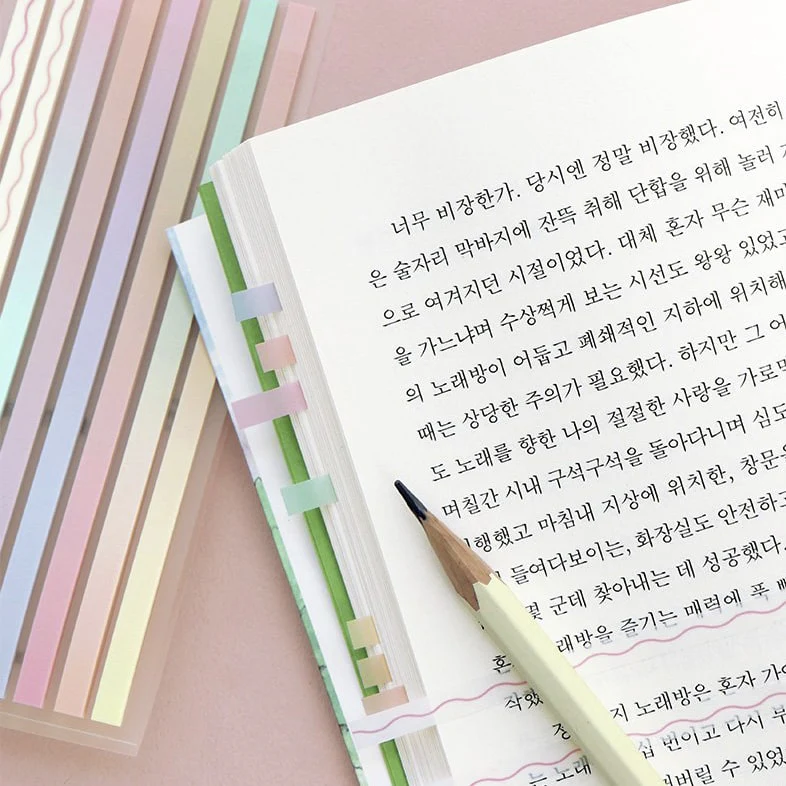 너무 비장한가. 당시엔 정말 비장했다. 여전히
은 술자리 막바지에 잔뜩 취해 단합을 위해 놀러
으로 여겨지던 시절이었다. 대체 혼자 무슨 재미
을 가느냐며 수상쩍게 보는 시선도 왕왕 있었고
의 노래방이 어둡고 폐쇄적인 지하에 위치해
때는 상당한 주의가 필요했다. 하지만 그 어
도 노래를 향한 나의 절절한 사랑을 가로막
며칠간 시내 구석구석을 돌아다니며 심도
행했고 마침내 지상에 위치한, 창문을
들여다보이는, 화장실도 안전하고
몇 군데 찾아내는 데 성공했다.
혼 래방을 즐기는 매력에 푹
작했
지 노래방은 혼자 가
는 노래 십 번이고 다시 부
버릴 수 있었